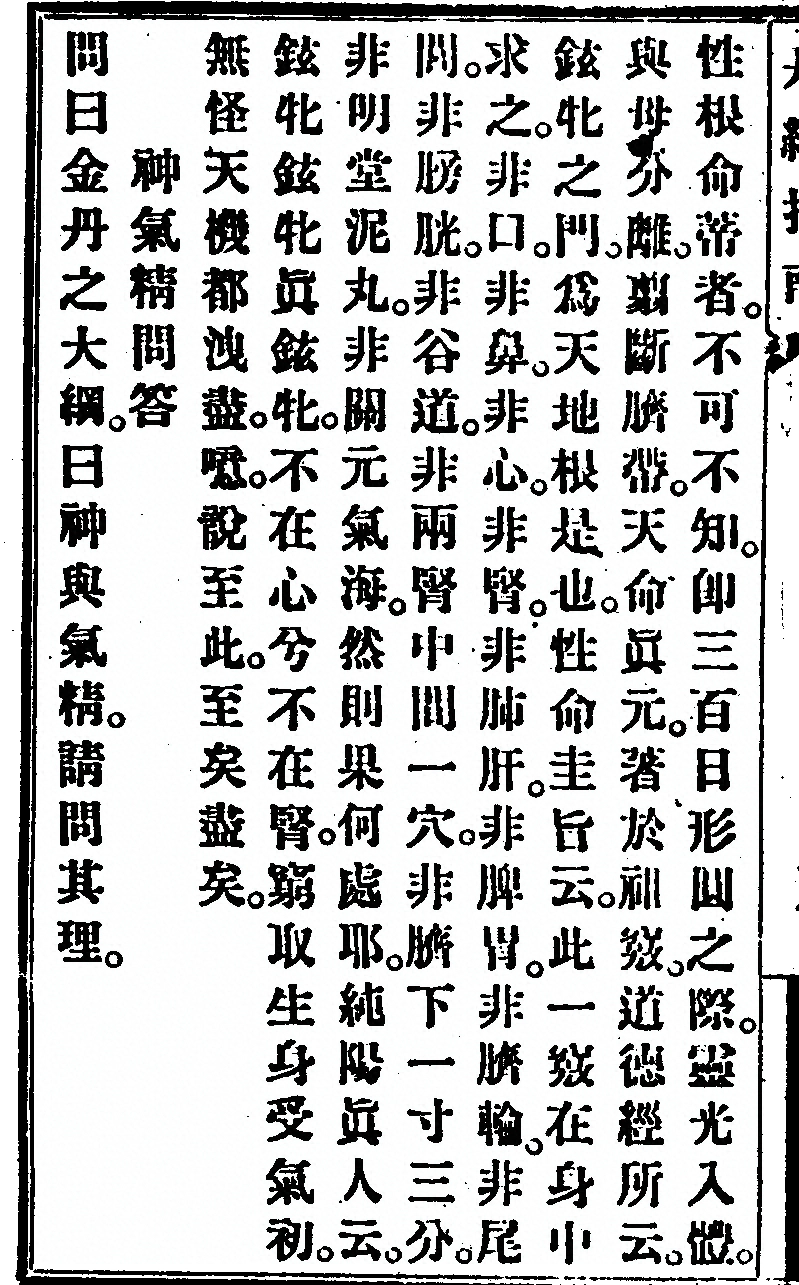 性根命蒂者。不可不知。卽三百日形圓之際。靈光入體。
與母分離。剪斷臍帶。天命眞元。著於祖竅。道德經所云。
鉉牝之門。爲天地根是也。性命圭旨云。此一竅在身中
求之。非口。非鼻。非心。非腎。非肺肝。非脾胃。非臍輪。非尾
閭。非膀胱。非谷道。非兩腎中間一穴。非臍下一寸三分。
非明堂泥丸。非關元氣海。然則果何處耶。純陽眞人云。
鉉牝鉉牝眞鉉牝。不在心兮不在腎。窮取生身受氣初。
無怪天機都洩盡。噫。說至此。至矣盡矣。
神氣精問答
問曰金丹之大綱。曰神與氣精。請問其理。